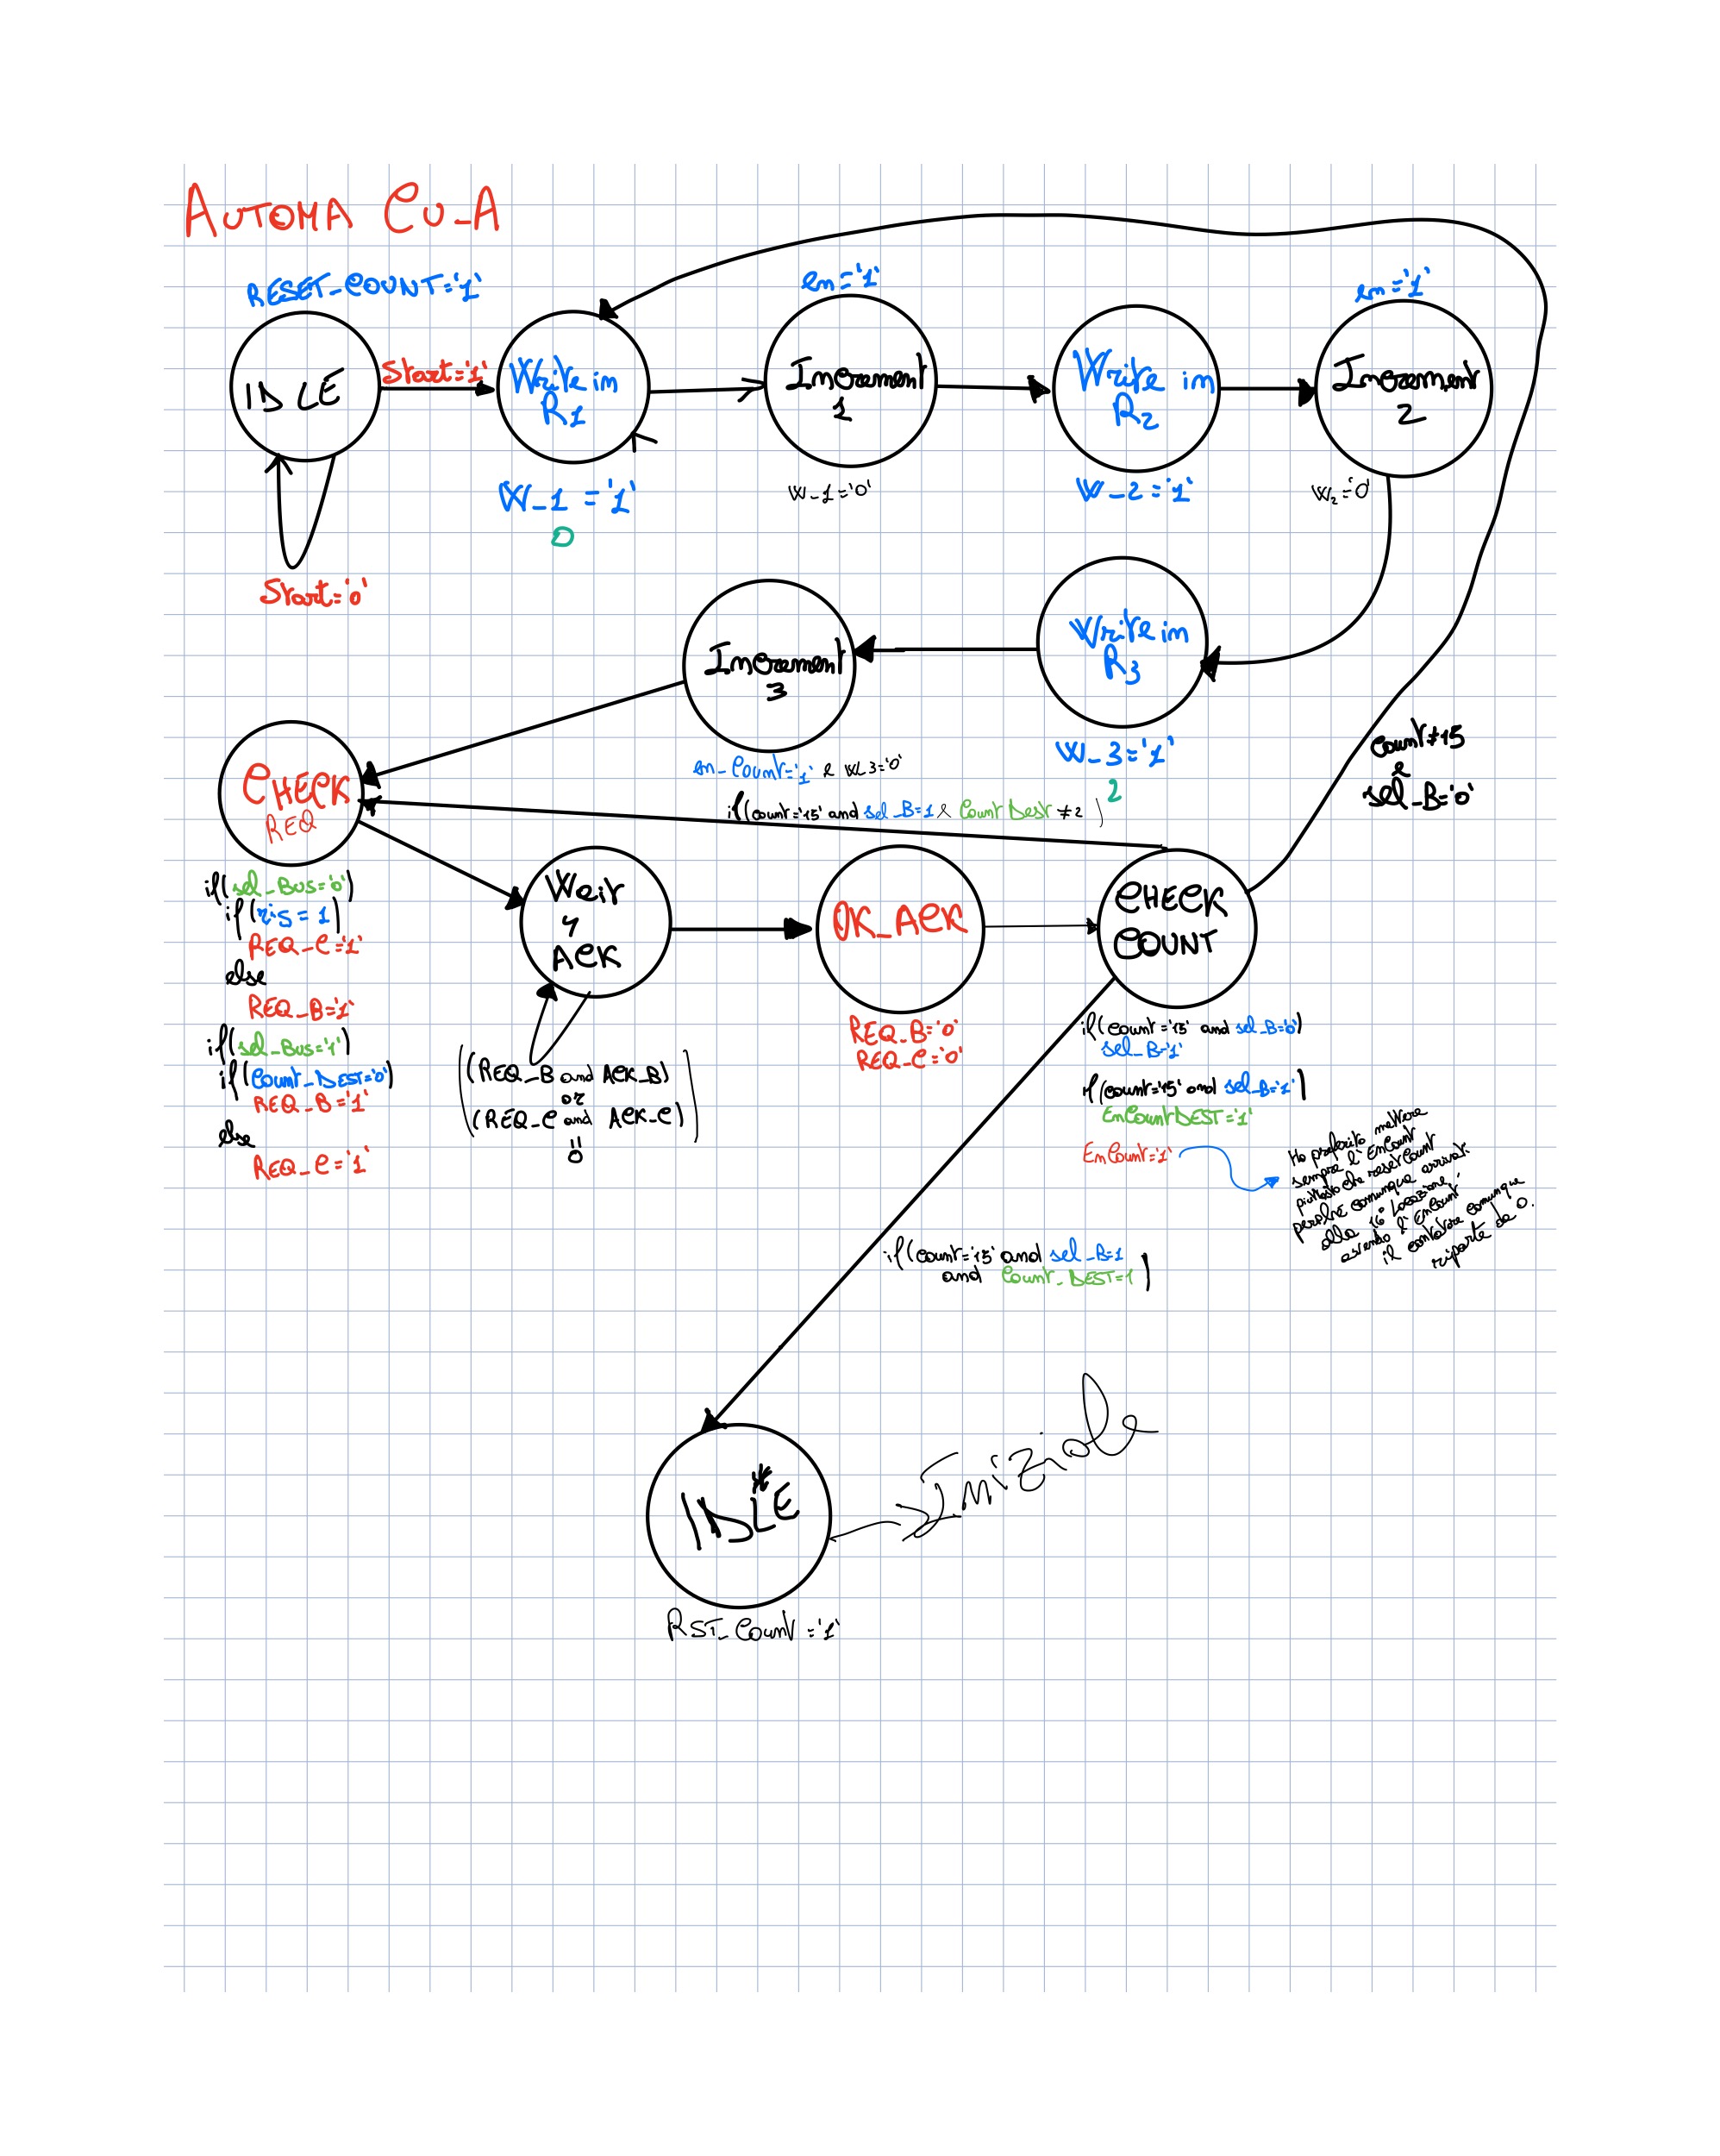 AUTOMA CU_A
RESET_COUNT='1'
IDLE
Start='1'
Start='0'
Write in
R1
W_1='1'
0
en='1'
Increment
1
W_1='0'
Write in
R2
W_2='1'
en='1'
Increment
2
W2='0'
Write in
R3
W_3='1'
2
Increment
3
en_Count='1' e W_3='0'
if(count='15' and sel_B=1 & Count Dest ≠2)
Count≠15
e
sel_B='0'
CHECK
REQ
if(sel_Bus='0')
if(ris=1)
REQ_C='1'
else
REQ_B='1'
if(sel_Bus='1')
if(Count_DEST='0')
REQ_B='1'
else
REQ_C='1'
Wait
4
ACK
((REQ_B and ACK_B)
or
(REQ_C and ACK_C))
=
0
OK_ACK
REQ_B='0'
REQ_C='0'
CHECK
COUNT
if(count='15' and sel_B='0')
sel_B='1'
if(count='15' and sel_B='1')
EnCountDEST='1'
EnCount='1'
Ho preferito mettere
sempre l'EnCount
piuttosto che resetCount
perché comunque arrivati
alla 16° locazione,
avendo l'EnCount
il contatore comunque
riparte da 0.
if(count='15' and sel_B=1
and Count_DEST=1)
IDLE*
Iniziale
RST_Count='1'